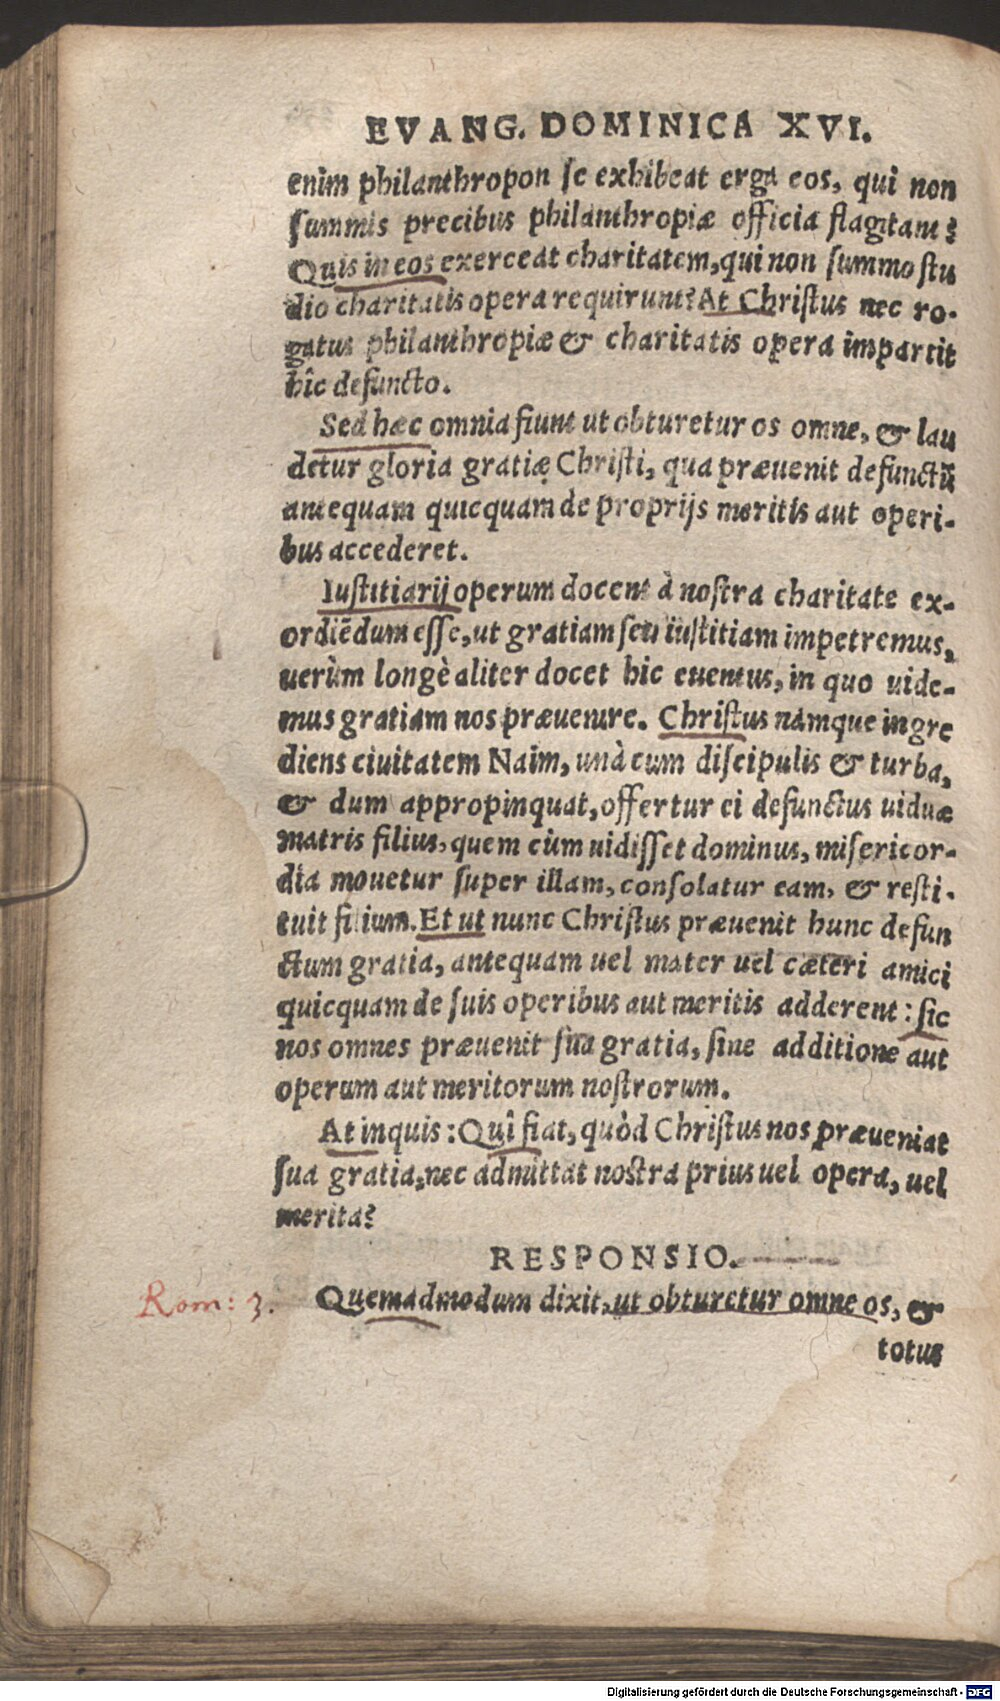 EVANG. DOMINICA XVI.
enim philanthropon se exhibeat erga eos, qui non
summis precibus philanthropiæ officia flagitant?
Quis in eos exerceat charitatem, qui non summo stu
dio charitatis opera requirunt? At Christus nec ro-
gatus philanthropiæ & charitatis opera impartit
hîc defuncto.
Sed hæc omnia fiunt ut obturetur os omne, & lau
detur gloria gratiæ Christi, qua præuenit defunctū
antequam quicquam de proprijs meritis aut operi-
bus accederet.
Iustitiarij operum docent à nostra charitate ex-
ordiēdum esse, ut gratiam seu iustitiam impetremus,
uerùm longè aliter docet hic euentus, in quo uide-
mus gratiam nos præuenire. Christus namque ingre
diens ciuitatem Naim, unà cum discipulis & turba,
& dum appropinquat, offertur ei defunctus uiduæ
matris filius, quem cùm uidisset dominus, misericor-
dia mouetur super illam, consolatur eam, & resti-
tuit filium. Et ut nunc Christus præuenit hunc defun
ctum gratia, antequam uel mater uel cæteri amici
quicquam de suis operibus aut meritis adderent: sic
nos omnes præuenit sua gratia, sine additione aut
operum aut meritorum nostrorum.
At inquis: Quî fiat, quòd Christus nos præueniat
sua gratia, nec admittat nostra prius uel opera, uel
merita?
RESPONSIO.
Rom: 3. Quemadmodum dixit, ut obturetur omne os, &
totus
Digitalisierung gefördert durch die Deutsche Forschungsgemeinschaft - DFG